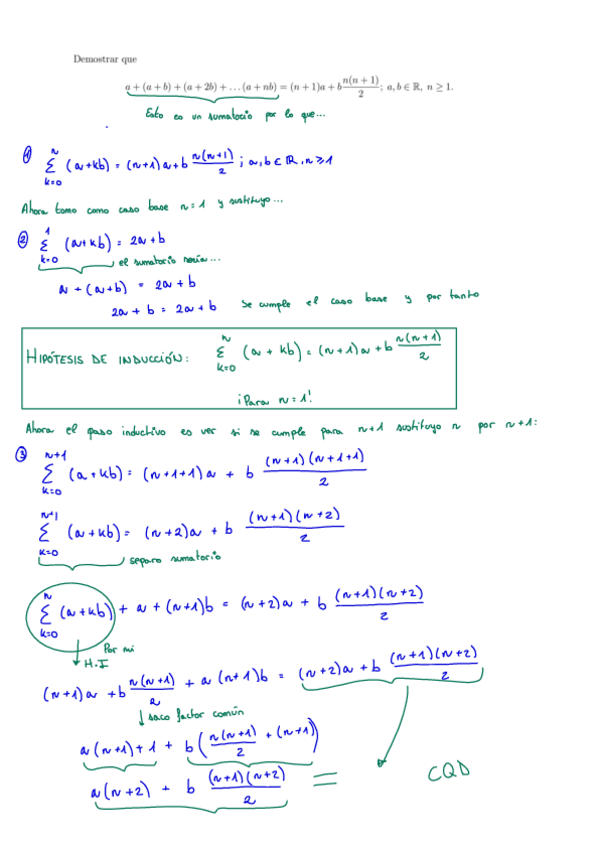 Demostrar que
a + (a + b) + (a + 2b) + ...(a + nb) = (n + 1)a + b n(n + 1)/2; a, b ∈ ℝ, n ≥ 1.
Esto es un sumatorio por lo que...
① n Σ k=0 (a+kb) = (n+1)a+b n(n+1)/2 ; a,b ∈ ℝ, n ≥ 1
Ahora tomo como caso base n=1 y sustituyo...
② 1 Σ k=0 (a+kb) = 2a+b
el sumatorio sería...
a + (a+b) = 2a + b
2a + b = 2a + b Se cumple el caso base y por tanto
HIPÓTESIS DE INDUCCIÓN: n Σ k=0 (a + kb) = (n+1)a + b n(n+1)/2
¡Para n=1!
Ahora el paso inductivo es ver si se cumple para n+1 sustituyo n por n+1:
③ n+1 Σ k=0 (a+kb) = (n+1+1)a + b (n+1)(n+1+1)/2
n+1 Σ k=0 (a+kb) = (n+2)a + b (n+1)(n+2)/2
separo sumatorio
n Σ k=0 (a+kb) + a + (n+1)b = (n+2)a + b (n+1)(n+2)/2
Por mi
H.I
(n+1)a + b n(n+1)/2 + a (n+1)b = (n+2)a + b (n+1)(n+2)/2
↓ saco factor común
a(n+1)+1 + b(n(n+1)/2 + (n+1))
a(n+2) + b (n+1)(n+2)/2 = CQD